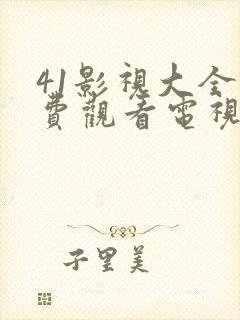 41影視大全
費觀看電視
子里美